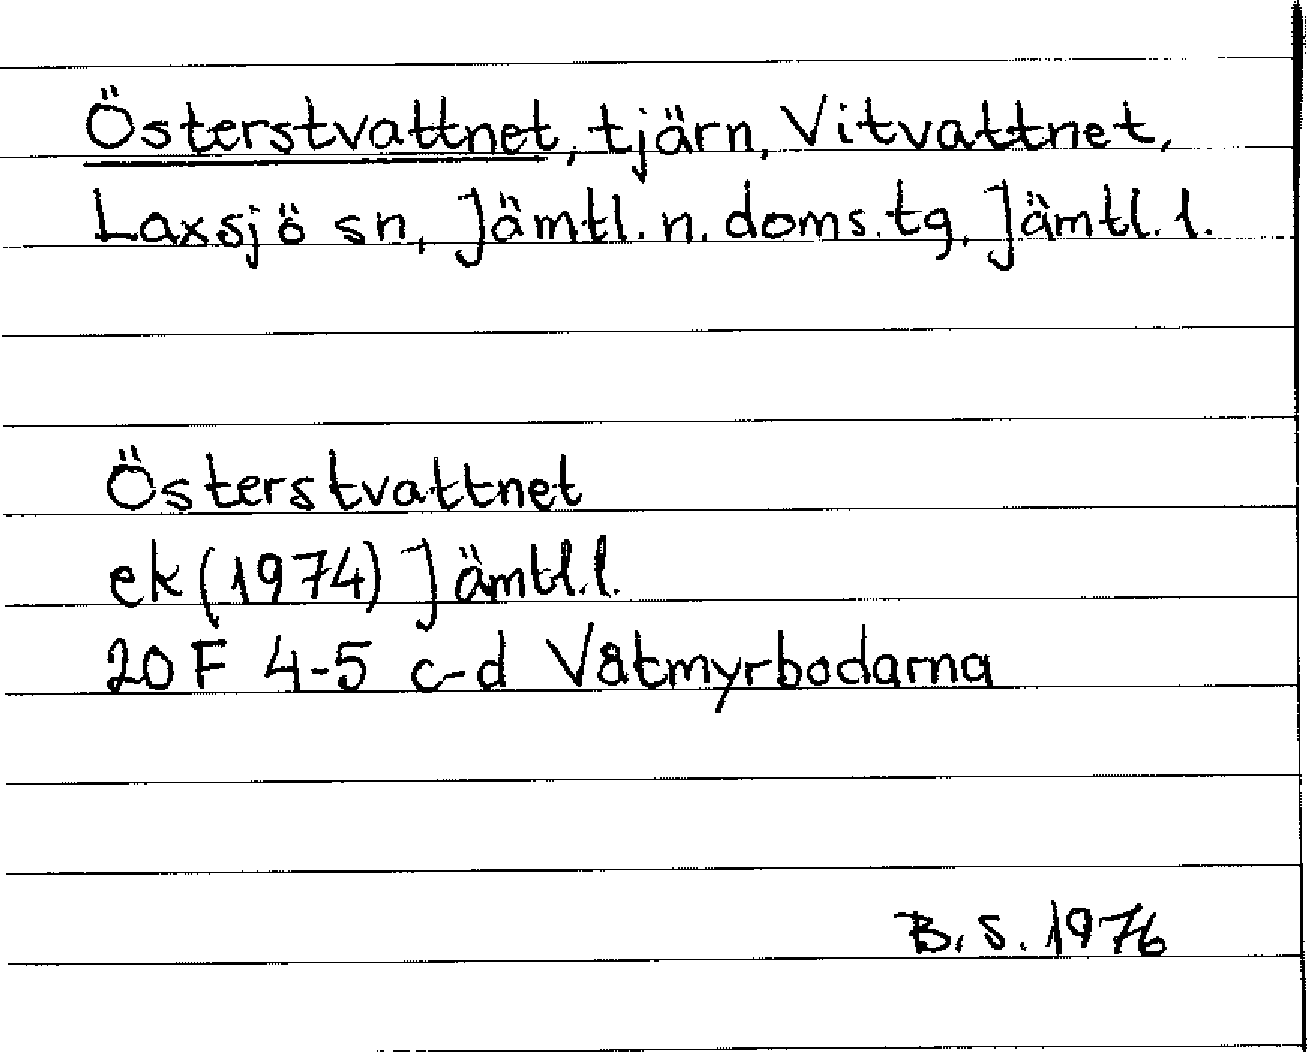 Österstvattnet, tjärn, Vitvattnet,
Laxsjö sn, Jämtl. n. doms. tg, Jämtl. l.
Österstvattnet
ek (1974) Jämtl. l.
20 F 4-5 c-d Våtmyrbodarna
B. S. 1976